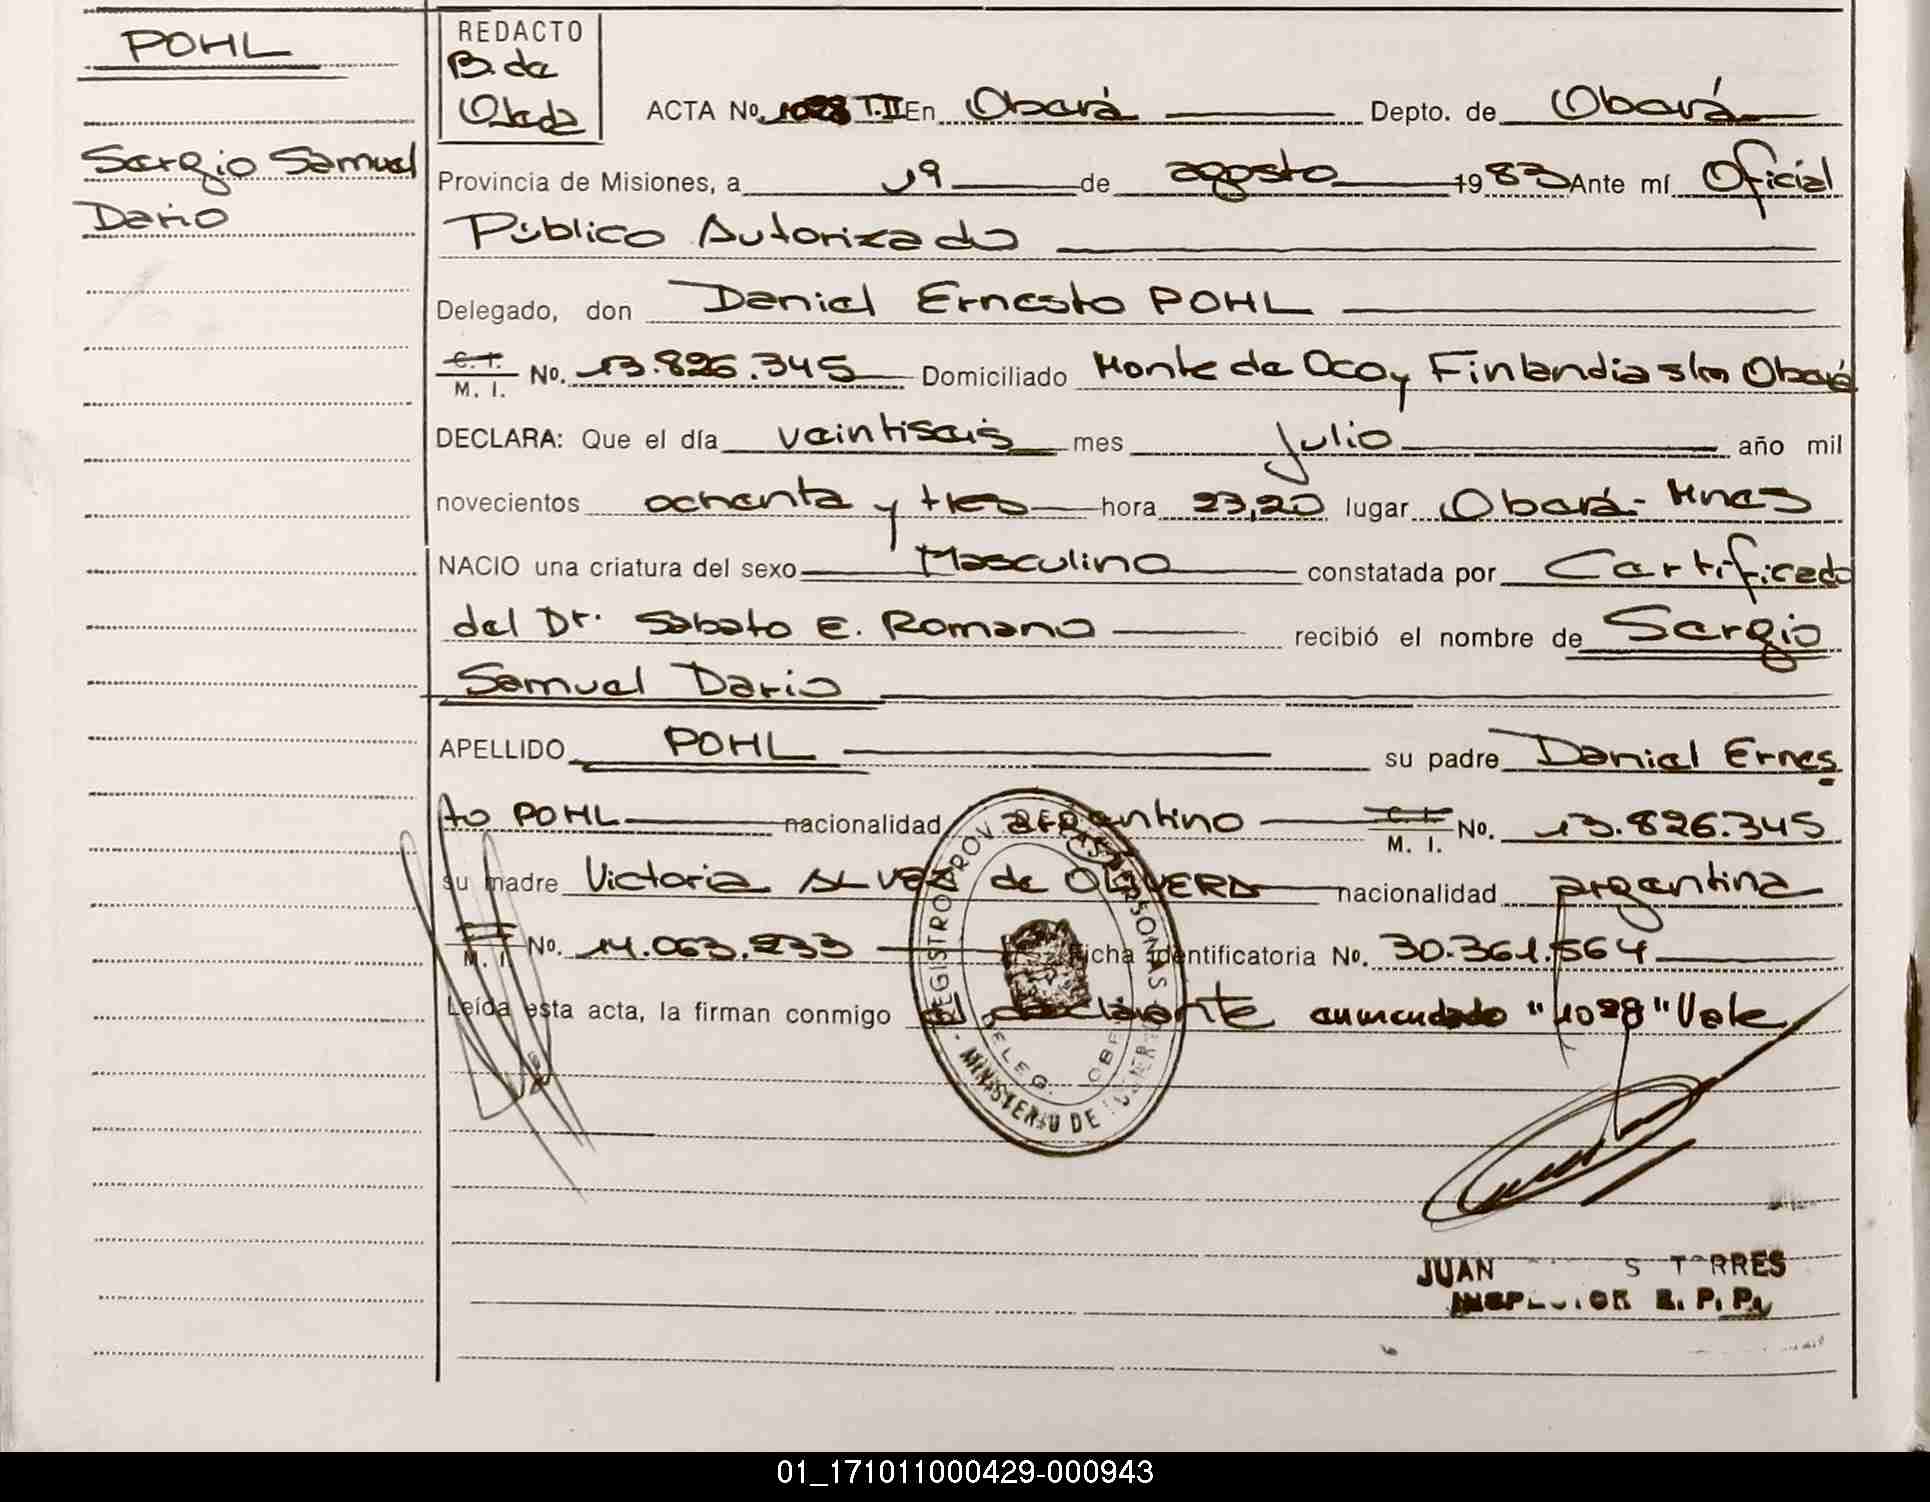 POHL
Sergio Samuel
Dario
REDACTO
B. de
Olada
ACTA No. 1028 T.II En Oberá Depto. de Oberá
Provincia de Misiones, a 19 de agosto 1983 Ante mí Oficial
Público Autorizado
Delegado, don Daniel Ernesto POHL
C. I.
M. I. No. 13.826.345 Domiciliado Monte de Oca y Finlandia s/n Oberá
DECLARA: Que el día veintiseis mes Julio año mil
novecientos ochenta y tres hora 23,20 lugar Oberá - Mnes
NACIO una criatura del sexo Masculino constatada por Certificado
del Dr. Sabato E. Romano recibió el nombre de Sergio
Samuel Dario
APELLIDO POHL su padre Daniel Ernes
to POHL nacionalidad argentino C. I.
M. I. No. 13.826.345
su madre Victoria ALVEZ de OLIVERA nacionalidad argentina
M. I. No. 14.063.233 Ficha identificatoria No. 30.361.564
Leída esta acta, la firman conmigo el declarante enmendado "1028" Vale
REGISTRO PROV. DE LAS PERSONAS
DELEG. OBE
MINISTERIO DE GOBIERNO
JUAN S TORRES
INSPECTOR R. P. P.
01_171011000429-000943